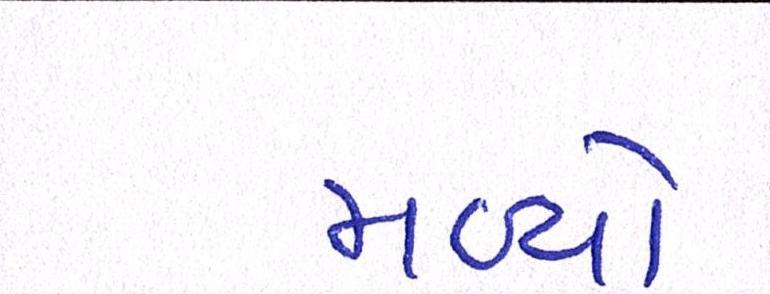 મળ્યો